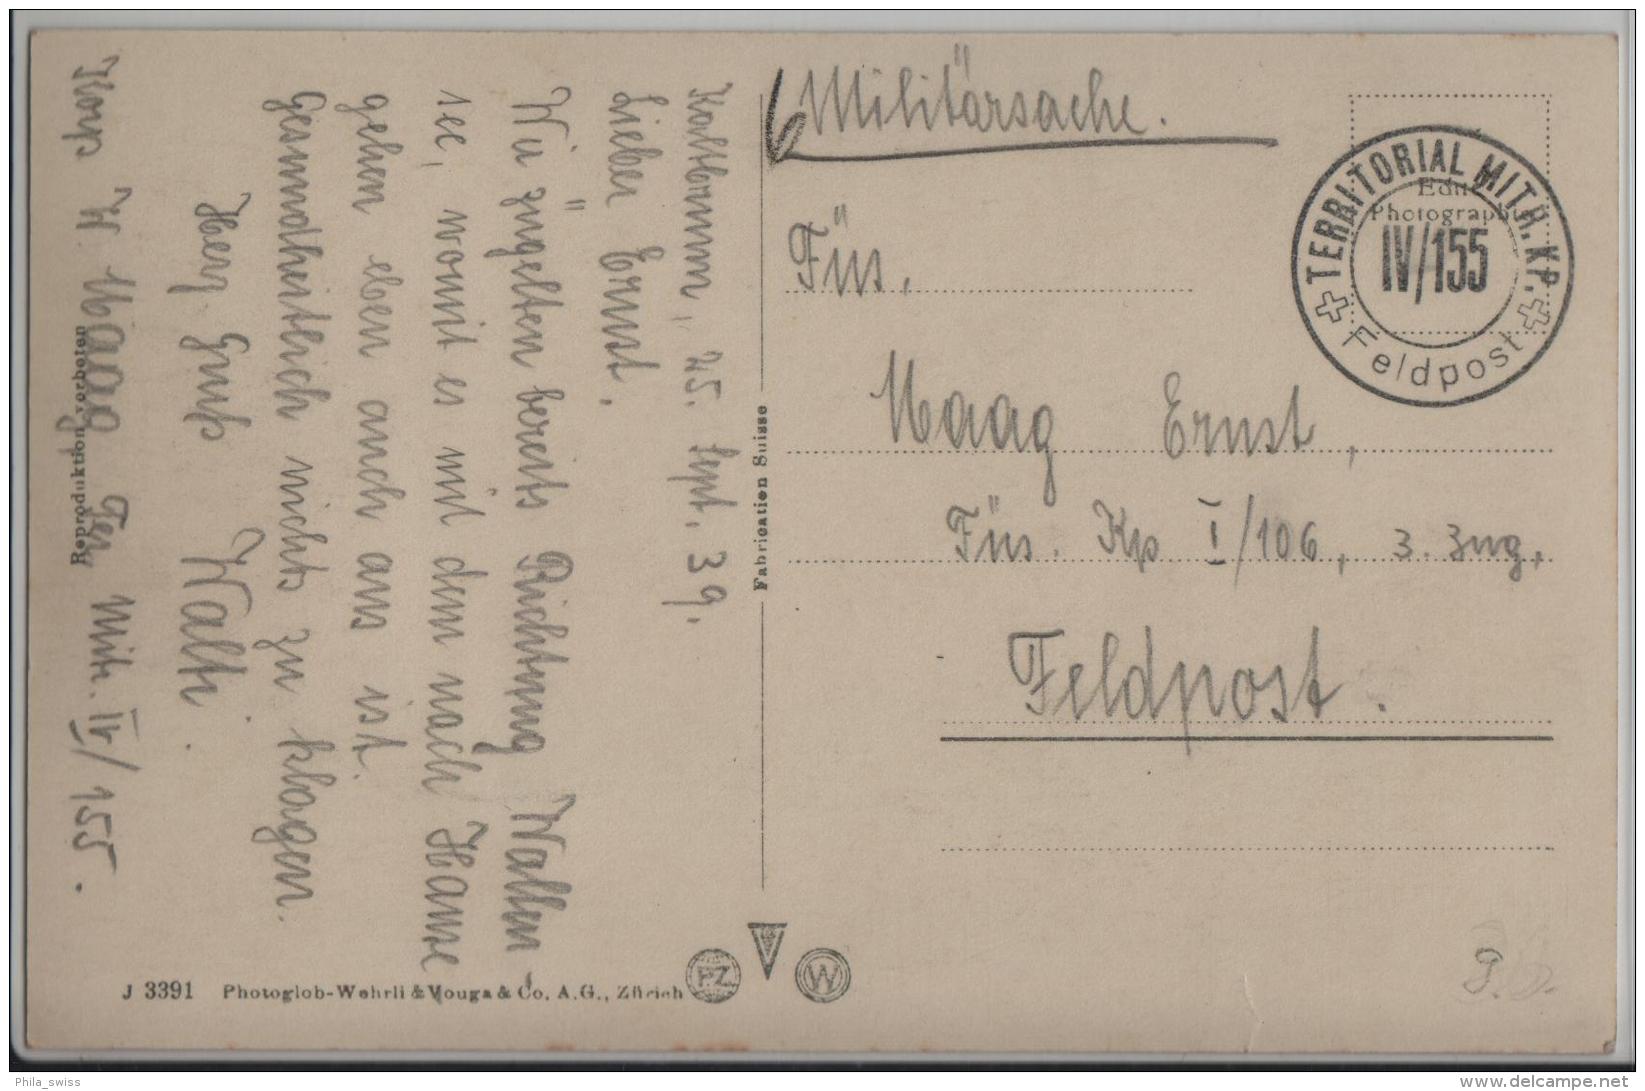 Militärsache.
TERRITORIAL MITR. KP.
IV/155
Feldpost
Edit.
Photographie
Füs.
Maag Ernst,
Füs. Kp I/106, 3. Zug,
Feldpost.
Kaltbrunn, 25. Sept. 39.
Lieber Ernst.
Wir zügelten bereits Richtung Wallen
see, womit es mit dem nach Hause
gehen eben auch aus ist.
Gesundheitlich nichts zu klagen.
Herz. Gruß Walti.
W Maag Ter Mitr. IV/155.
Fabrication Suisse
Reproduktion verboten
J 3391 Photoglob-Wehrli & Vouga & Co. A.G., Zürich
PZ
W
Phila_swiss
www.delcampe.net